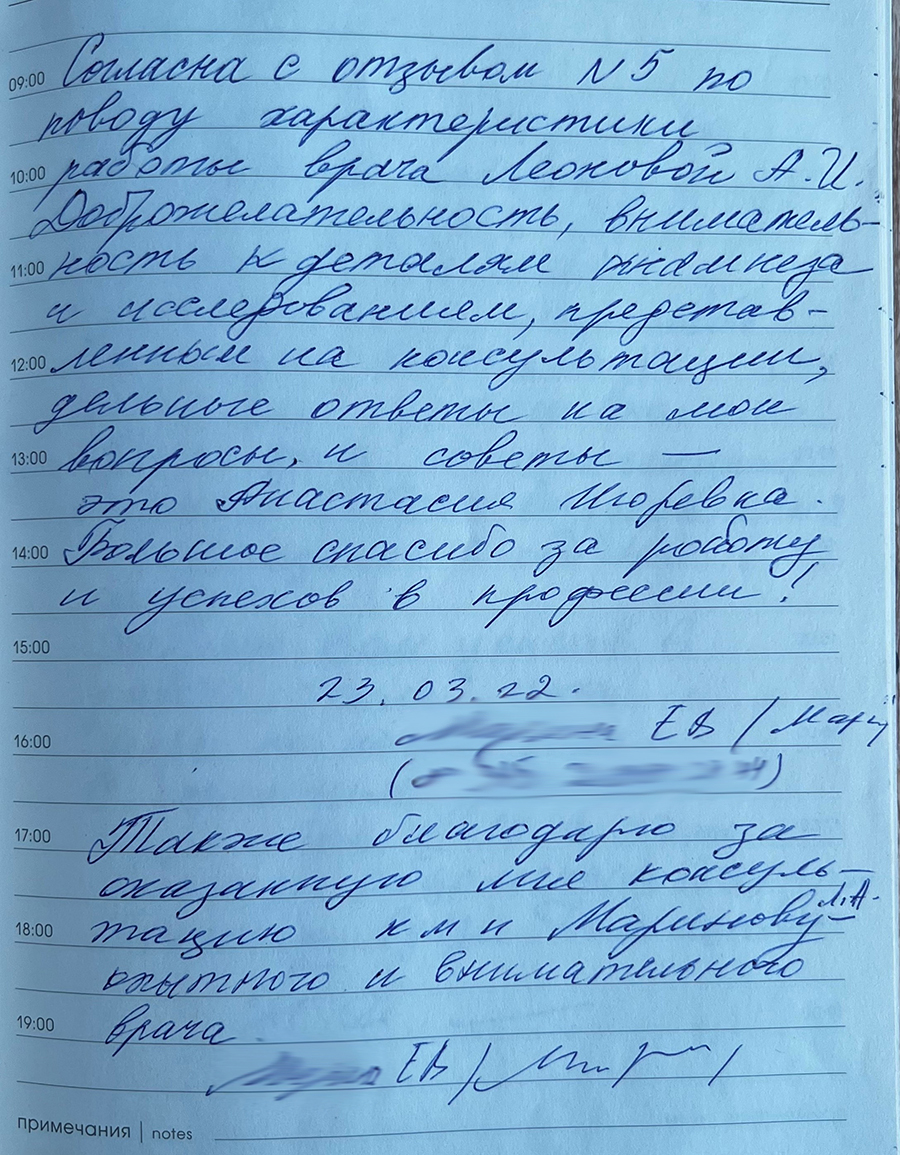 09:00 Согласна с отзывом N 5 по
поводу характеристики
10:00 работы врача Леоновой А.И.
Доброжелательность, вниматель-
11:00 ность к деталям анамнеза
и исследованиям, представ-
12:00 ленным на консультации,
дельные ответы на мои
13:00 вопросы, и советы —
это Анастасия Игоревна.
14:00 Большое спасибо за работу
и успехов в профессии!
15:00
23.03.22.
16:00 ЕВ /
17:00 Также благодарю за
оказанную мне консуль-
18:00 тацию кмн Маринову Л.А. -
опытного и внимательного
19:00 врача.
ЕВ /
примечания | notes